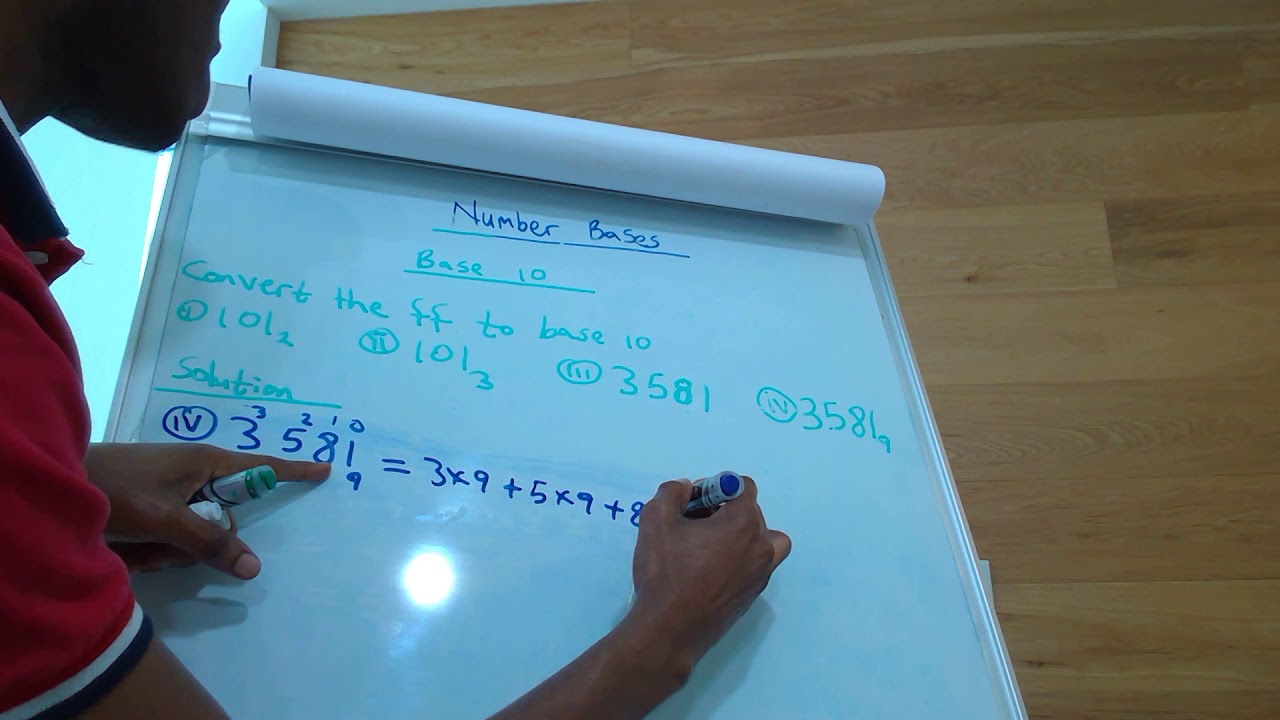 Number Bases
Base 10
Convert the ff to base 10
(i) 101₂ (ii) 101₃ (iii) 3581 (iv) 3581₉
Solution
(iv) 3³5²8¹1⁰₉ = 3×9 + 5×9 + 8